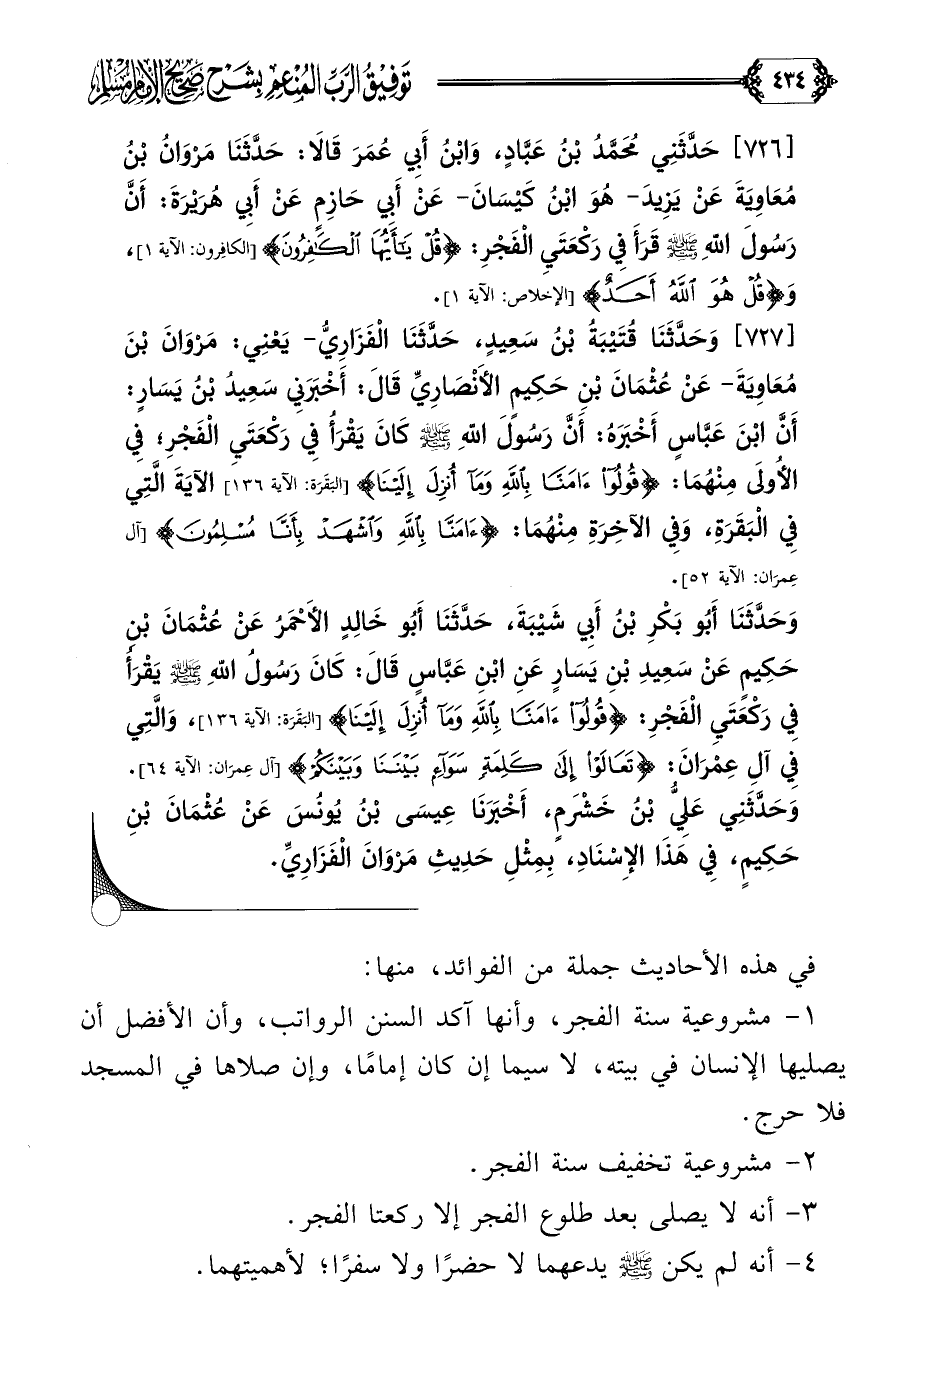 ٤٣٤
توفيق الرب المنعم بشرح صحيح الإمام مسلم
[٧٢٦] حَدَّثَنِي مُحَمَّدُ بْنُ عَبَّادٍ، وَابْنُ أَبِي عُمَرَ قَالَا: حَدَّثَنَا مَرْوَانُ بْنُ
مُعَاوِيَةَ عَنْ يَزِيدَ- هُوَ ابْنُ كَيْسَانَ- عَنْ أَبِي حَازِمٍ عَنْ أَبِي هُرَيْرَةَ: أَنَّ
رَسُولَ اللهِ ﷺ قَرَأَ فِي رَكْعَتَيِ الْفَجْرِ: ﴿قُلْ يَٰٓأَيُّهَا ٱلْكَٰفِرُونَ﴾ [الكافِرون: الآية ١]،
وَ﴿قُلْ هُوَ ٱللَّهُ أَحَدٌ﴾ [الإخلاص: الآية ١].
[٧٢٧] وَحَدَّثَنَا قُتَيْبَةُ بْنُ سَعِيدٍ، حَدَّثَنَا الْفَزَارِيُّ- يَعْنِي: مَرْوَانَ بْنَ
مُعَاوِيَةَ- عَنْ عُثْمَانَ بْنِ حَكِيمٍ الأَنْصَارِيِّ قَالَ: أَخْبَرَنِي سَعِيدُ بْنُ يَسَارٍ:
أَنَّ ابْنَ عَبَّاسٍ أَخْبَرَهُ: أَنَّ رَسُولَ اللهِ ﷺ كَانَ يَقْرَأُ فِي رَكْعَتَيِ الْفَجْرِ؛ فِي
الأُولَى مِنْهُمَا: ﴿قُولُوٓاْ ءَامَنَّا بِٱللَّهِ وَمَآ أُنزِلَ إِلَيْنَا﴾ [البَقَرَة: الآية ١٣٦] الآيَةَ الَّتِي
فِي الْبَقَرَةِ، وَفِي الآخِرَةِ مِنْهُمَا: ﴿ءَامَنَّا بِٱللَّهِ وَٱشْهَدْ بِأَنَّا مُسْلِمُونَ﴾ [آل
عِمرَان: الآية ٥٢].
وَحَدَّثَنَا أَبُو بَكْرِ بْنُ أَبِي شَيْبَةَ، حَدَّثَنَا أَبُو خَالِدٍ الأَحْمَرُ عَنْ عُثْمَانَ بْنِ
حَكِيمٍ عَنْ سَعِيدِ بْنِ يَسَارٍ عَنِ ابْنِ عَبَّاسٍ قَالَ: كَانَ رَسُولُ اللهِ ﷺ يَقْرَأُ
فِي رَكْعَتَيِ الْفَجْرِ: ﴿قُولُوٓاْ ءَامَنَّا بِٱللَّهِ وَمَآ أُنزِلَ إِلَيْنَا﴾ [البَقَرَة: الآية ١٣٦]، وَالَّتِي
فِي آلِ عِمْرَانَ: ﴿تَعَالَوْاْ إِلَىٰ كَلِمَةٍ سَوَآءٍ بَيْنَنَا وَبَيْنَكُمْ﴾ [آل عِمرَان: الآية ٦٤].
وَحَدَّثَنِي عَلِيُّ بْنُ خَشْرَمٍ، أَخْبَرَنَا عِيسَى بْنُ يُونُسَ عَنْ عُثْمَانَ بْنِ
حَكِيمٍ، فِي هَذَا الإِسْنَادِ، بِمِثْلِ حَدِيثِ مَرْوَانَ الْفَزَارِيِّ.
في هذه الأحاديث جملة من الفوائد، منها:
١- مشروعية سنة الفجر، وأنها آكد السنن الرواتب، وأن الأفضل أن
يصليها الإنسان في بيته، لا سيما إن كان إمامًا، وإن صلاها في المسجد
فلا حرج.
٢- مشروعية تخفيف سنة الفجر.
٣- أنه لا يصلى بعد طلوع الفجر إلا ركعتا الفجر.
٤- أنه لم يكن ﷺ يدعهما لا حضرًا ولا سفرًا؛ لأهميتهما.